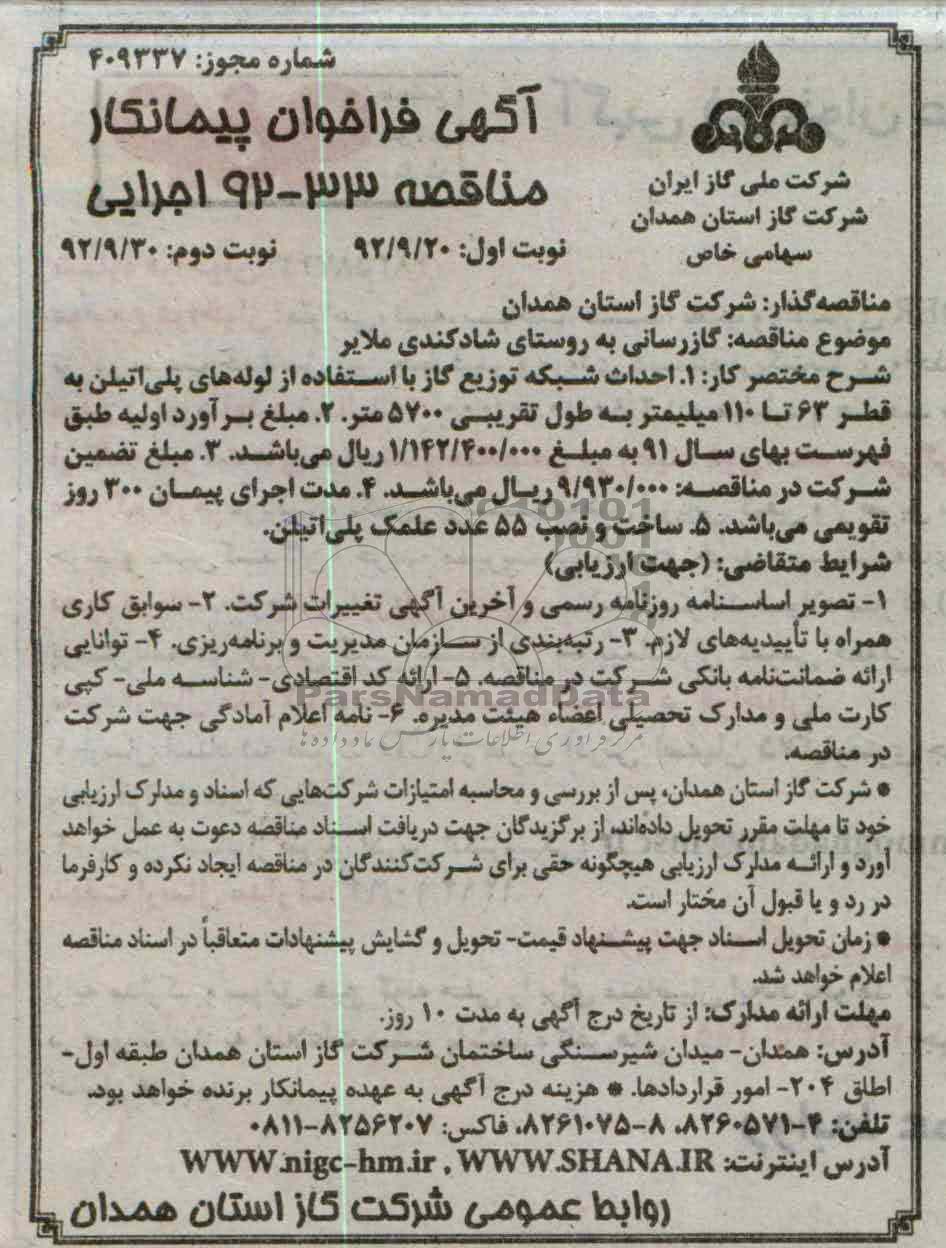 شماره مجوز: ۴۰۹۳۳۷
آگهی فراخوان پیمانکار
مناقصه ۳۳-۹۲ اجرایی
نوبت اول: ۹۲/۹/۲۰ نوبت دوم: ۹۲/۹/۳۰
شرکت ملی گاز ایران
شرکت گاز استان همدان
سهامی خاص
مناقصه‌گذار: شرکت گاز استان همدان
موضوع مناقصه: گازرسانی به روستای شادکندی ملایر
شرح مختصر کار: ۱. احداث شبکه توزیع گاز با استفاده از لوله‌های پلی‌اتیلن به
قطر ۶۳ تا ۱۱۰ میلیمتر به طول تقریبی ۵۷۰۰ متر. ۲. مبلغ برآورد اولیه طبق
فهرست بهای سال ۹۱ به مبلغ ۱/۱۴۲/۴۰۰/۰۰۰ ریال می‌باشد. ۳. مبلغ تضمین
شرکت در مناقصه: ۹/۹۳۰/۰۰۰ ریال می‌باشد. ۴. مدت اجرای پیمان ۳۰۰ روز
تقویمی می‌باشد. ۵. ساخت و نصب ۵۵ عدد علمک پلی‌اتیلن.
شرایط متقاضی: (جهت ارزیابی)
۱- تصویر اساسنامه روزنامه رسمی و آخرین آگهی تغییرات شرکت. ۲- سوابق کاری
همراه با تأییدیه‌های لازم. ۳- رتبه‌بندی از سازمان مدیریت و برنامه‌ریزی. ۴- توانایی
ارائه ضمانتنامه بانکی شرکت در مناقصه. ۵- ارائه کد اقتصادی- شناسه ملی- کپی
ParsNamadData
کارت ملی و مدارک تحصیلی اعضاء هیئت مدیره. ۶- نامه اعلام آمادگی جهت شرکت
مرکز فرآوری اطلاعات پارس نماد داده ها
در مناقصه.
* شرکت گاز استان همدان، پس از بررسی و محاسبه امتیازات شرکت‌هایی که اسناد و مدارک ارزیابی
خود تا مهلت مقرر تحویل داده‌اند، از برگزیدگان جهت دریافت اسناد مناقصه دعوت به عمل خواهد
آورد و ارائه مدارک ارزیابی هیچگونه حقی برای شرکت‌کنندگان در مناقصه ایجاد نکرده و کارفرما
در رد و یا قبول آن مختار است.
* زمان تحویل اسناد جهت پیشنهاد قیمت- تحویل و گشایش پیشنهادات متعاقباً در اسناد مناقصه
اعلام خواهد شد.
مهلت ارائه مدارک: از تاریخ درج آگهی به مدت ۱۰ روز.
آدرس: همدان- میدان شیرسنگی ساختمان شرکت گاز استان همدان طبقه اول-
اطلاق ۲۰۴- امور قراردادها. * هزینه درج آگهی به عهده پیمانکار برنده خواهد بود.
تلفن: ۴-۸۲۶۰۵۷۱، ۸-۸۲۶۱۰۷۵، فاکس: ۸۲۵۶۲۰۷-۰۸۱۱
آدرس اینترنت: WWW.nigc-hm.ir , WWW.SHANA.IR
روابط عمومی شرکت گاز استان همدان